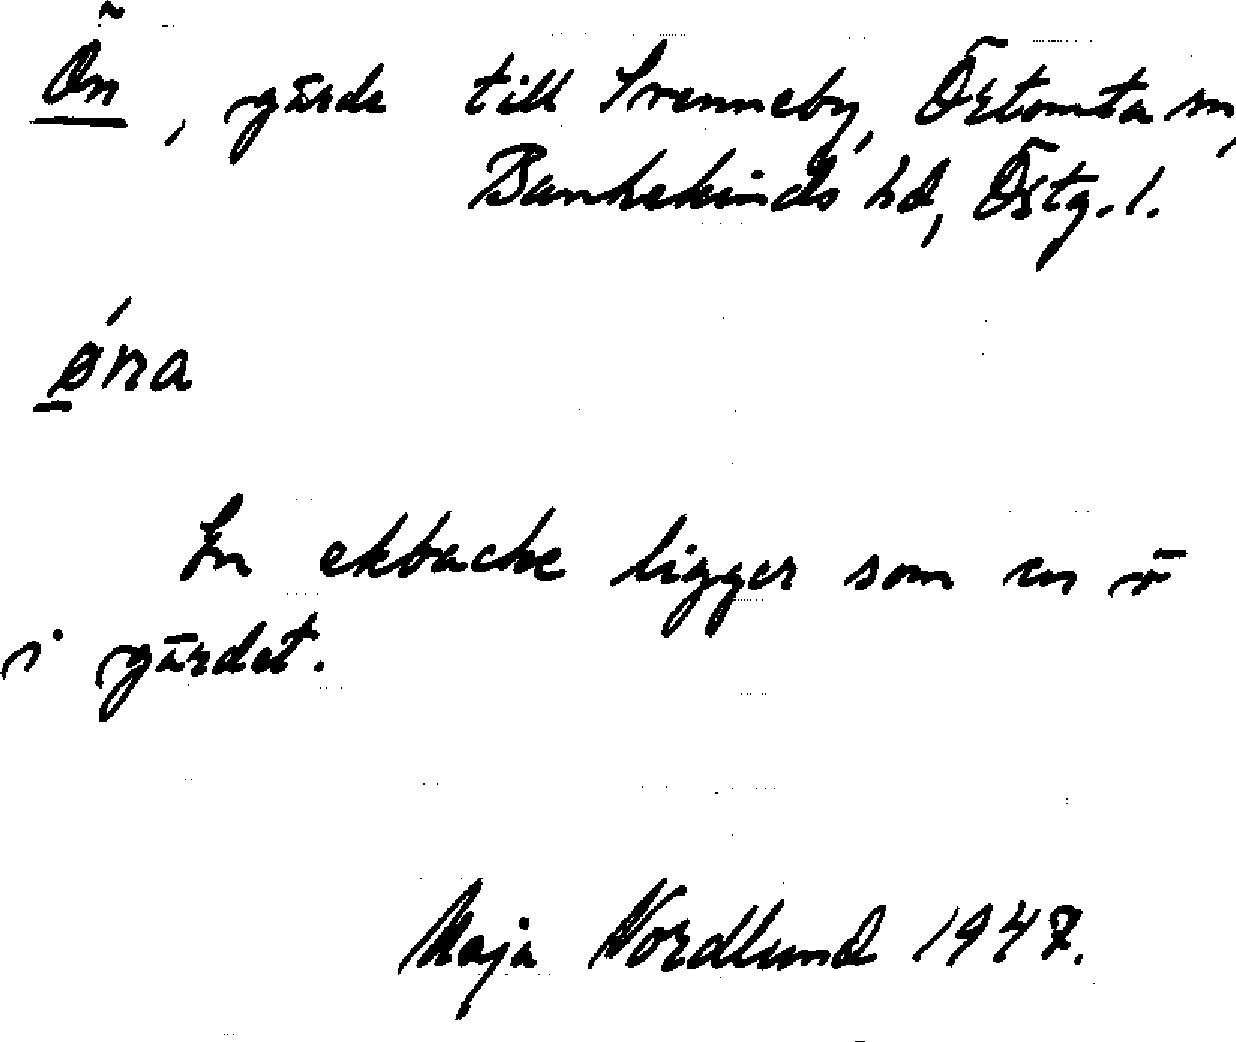 Ön, gärde till Svenneby, Östomta sn,
Bankekinds hd, Östg. l.
øna
En ekbacke ligger som en ö
i gärdet.
Maja Nordlund 1947.